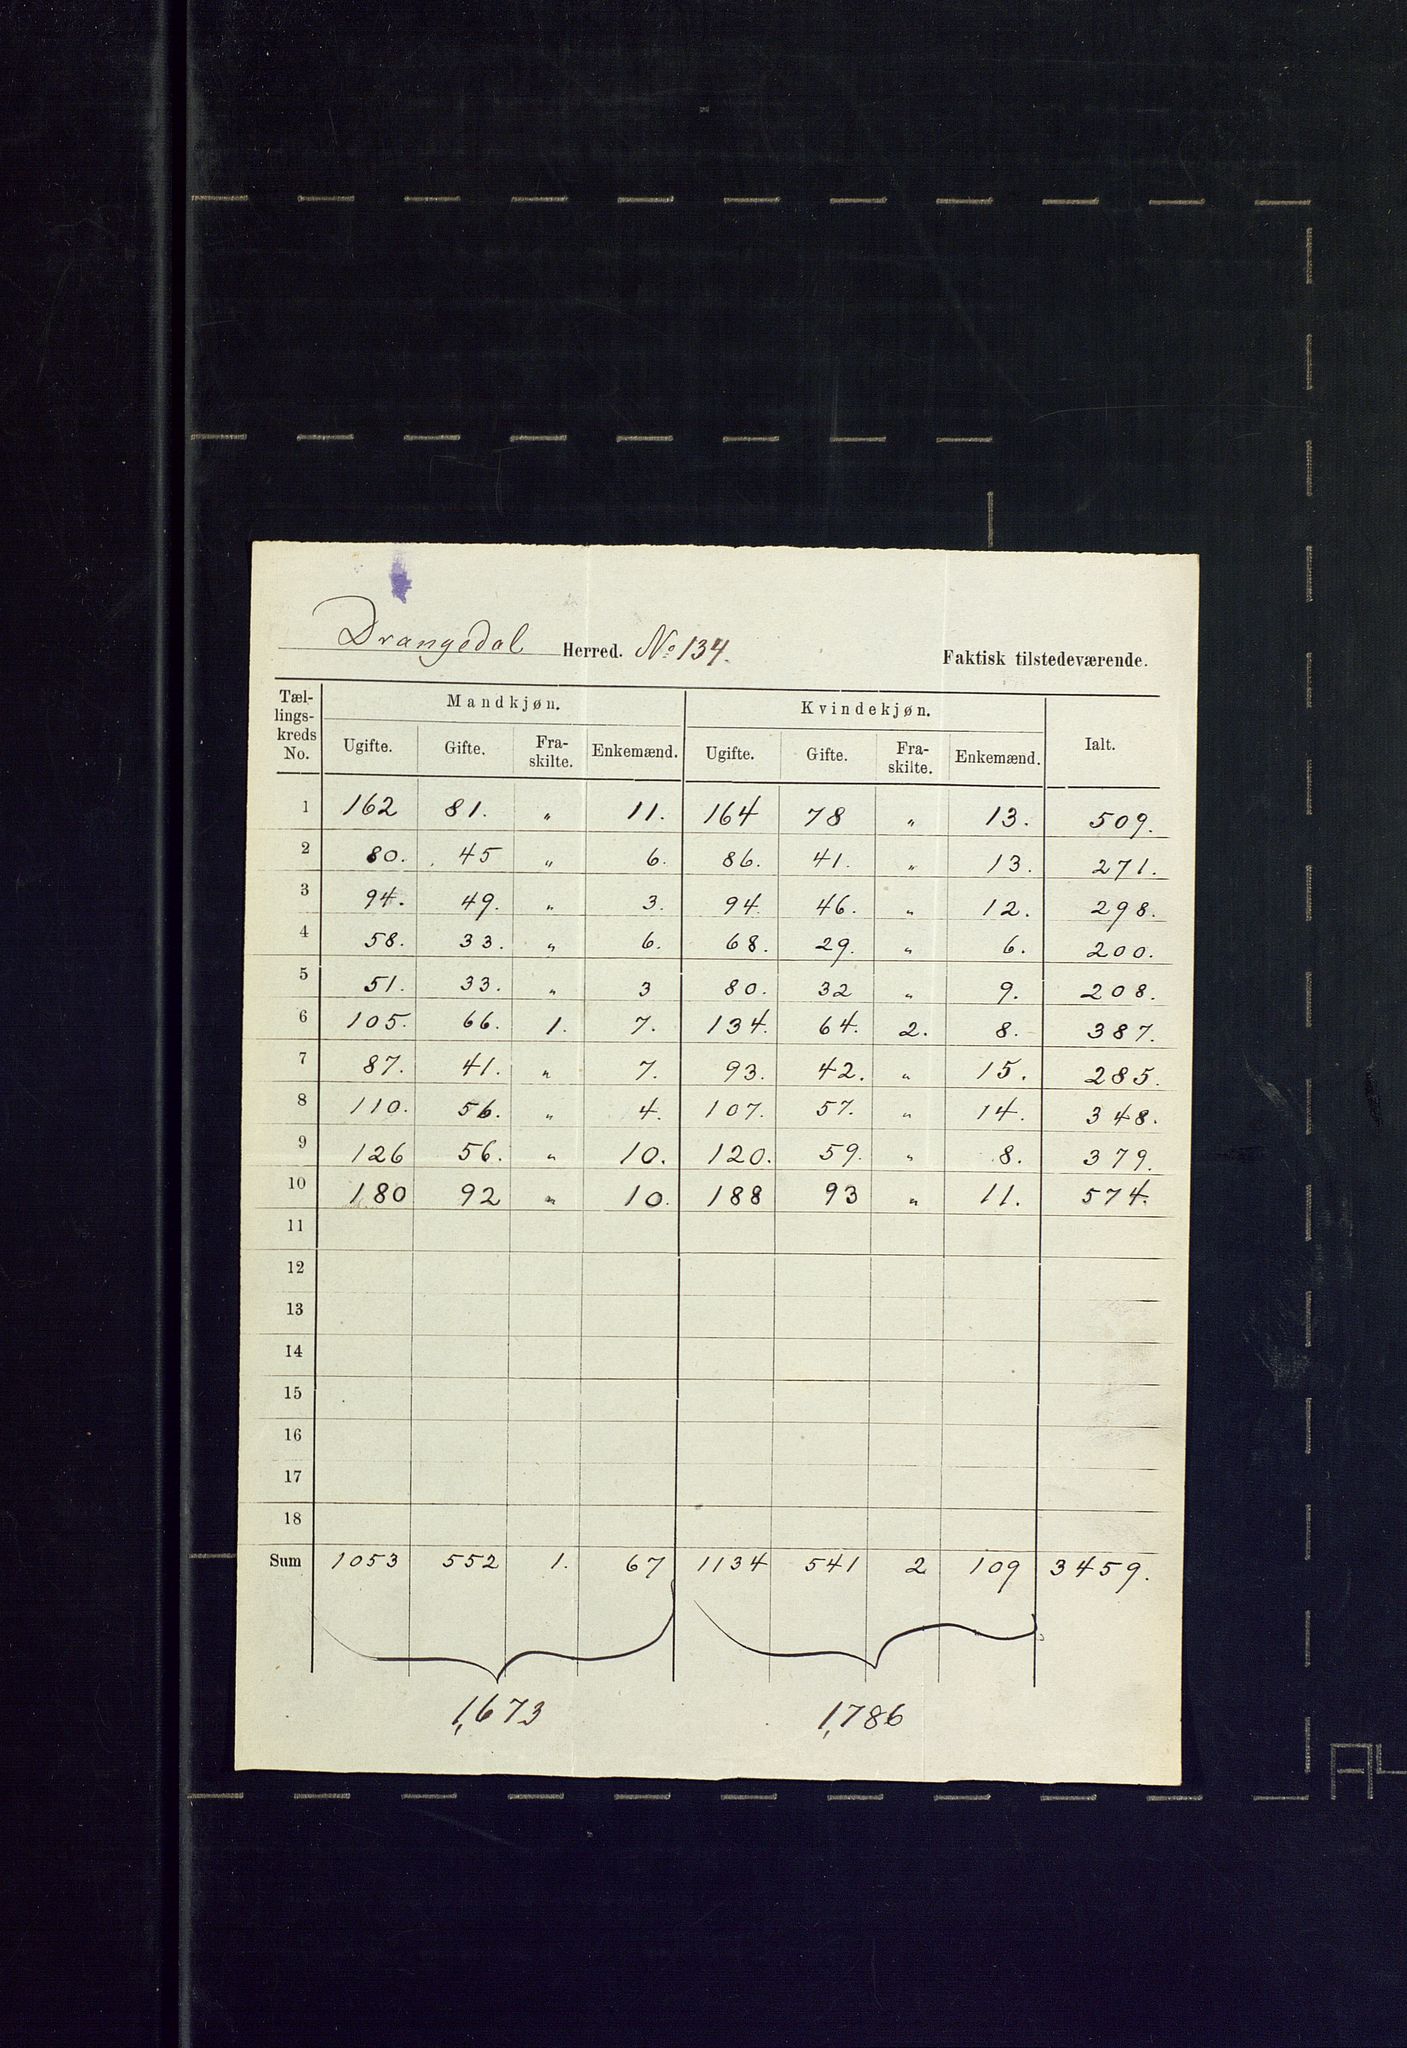 Drangedal Herred. No 134. Faktisk tilstedeværende.
Tællingskreds No. Mandkjøn. Kvindekjøn. Ialt.
Ugifte. Gifte. Fraskilte. Enkemænd. Ugifte. Gifte. Fraskilte. Enkemænd.
1 162 81. " 11. 164 78 " 13. 509.
2 80. 45 " 6. 86. 41. " 13. 271.
3 94. 49. " 3. 94. 46. " 12. 298.
4 58. 33. " 6. 68. 29. " 6. 200.
5 51. 33. " 3 80. 32 " 9. 208.
6 105. 66. 1. 7. 134. 64. 2. 8. 387.
7 87. 41. " 7. 93. 42. " 15. 285.
8 110. 56. " 4. 107. 57. " 14. 348.
9 126 56. " 10. 120. 59. " 8. 379.
10 180 92 " 10. 188 93 " 11. 574.
11
12
13
14
15
16
17
18
Sum 1053 552 1. 67 1134 541 2 109 3459.
1,673 1,786
A4